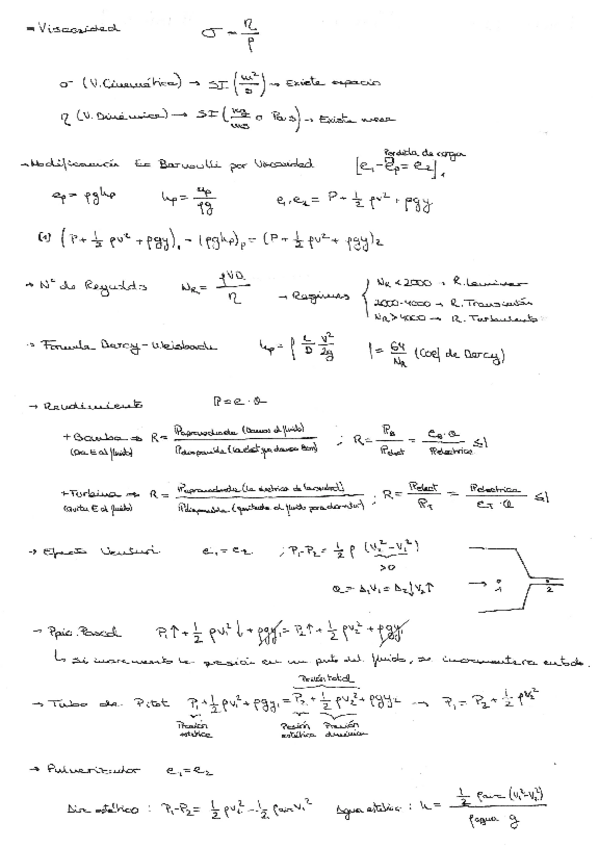 → Viscosidad σ = η/ρ
σ (V. Cinemática) → SI (m²/s) → Existe espacio
η (V. Dinámica) → SI (kg/ms o Pa·s) → Existe masa
→ Modificación Ec Bernoulli por Viscosidad [e₁ - eₚ = e₂]₁ Perdida de carga
eₚ = ρghₚ hₚ = eₚ/ρg e₁,e₂ = P + 1/2 ρv² + ρgy
(1) (P + 1/2 ρv² + ρgy)₁ - (ρghₚ)ₚ = (P + 1/2 ρv² + ρgy)₂
→ Nº de Reynolds N_R = ρVD/η → Regimenes { N_R < 2000 → R. Laminar
2000-4000 → R. Transición
N_R > 4000 → R. Turbulento
→ Formula Darcy-Weisbach hₚ = f L/D v²/2g f = 64/N_R (Coef de Darcy)
→ Rendimiento P = e · Q
+ Bomba → R = Paprovechada (Damos al fluido) / Pdisponible ; R = P_B/Pelect = e_B·Q/Pelectrica ≤ 1
(Da E al fluido)
+ Turbina → R = Paprovechada / Pdisponible ; R = Pelect/P_T = Pelectrica/e_T·Q ≤ 1
(quita E al fluido)
→ Efecto Venturi e₁ = e₂ ; P₁-P₂ = 1/2 ρ (v₂²-v₁²)
>0
Q = A₁V₁ = A₂↓V₂↑
1 2
→ Ppio. Pascal P₁↑ + 1/2 ρv₁² + ρgy₁ = P₂↑ + 1/2 ρv₂² + ρgy₁
↳ si incremento la presión en un pto del fluido, se incrementara en todo.
Presión total
→ Tubo de Pitot P₁ + 1/2 ρv₁² + ρgy₁ = P₂ + 1/2 ρv₂² + ρgy₂ → P₁ = P₂ + 1/2 ρv₂²
Presión estática Presión estática Presión dinámica
→ Pulverizador e₁ = e₂
Aire estático : P₁-P₂ = 1/2 ρv₂² - 1/2 ρaire v₁² Agua estática : h = 1/2 ρaire (v₁²-v₂²) / ρagua g